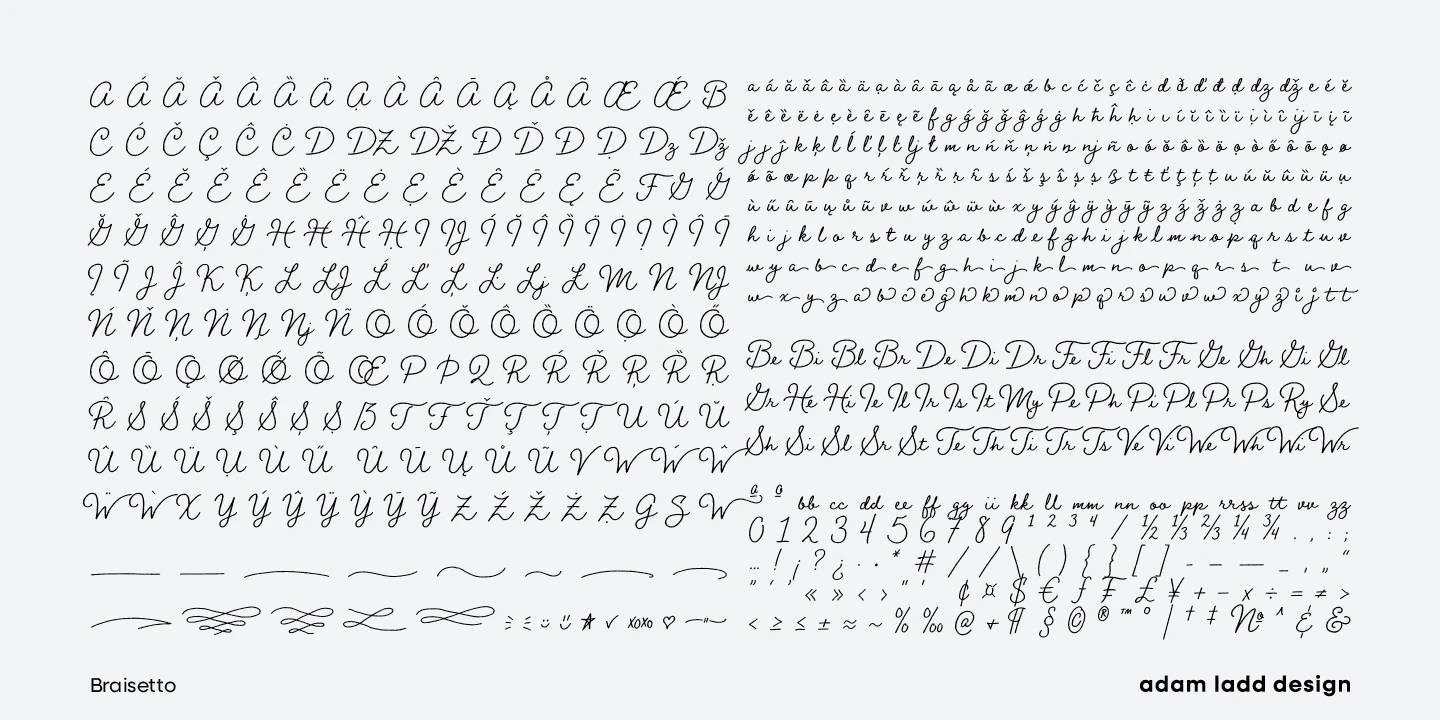 A Á Ă Ǎ Â Ȁ Ä Ạ À Ȃ Ā Ą Å Ã Æ Ǽ B
C Ć Č Ç Ĉ Ċ D DZ DŽ Đ Ď Đ Ḍ Dz Dž
E É Ĕ Ě Ê Ȅ Ë Ė Ẹ È Ȇ Ē Ę Ẽ F G Ǵ
Ğ Ǧ Ĝ Ģ Ġ H Ħ Ĥ Ḥ I IJ Í Ĭ Î Ȉ Ï İ Ị Ì Ȋ Ī
Į Ĩ J Ĵ K Ķ L LJ Ĺ Ľ Ļ Ḷ Lj Ł M N NJ
Ń Ň Ņ Ṅ Ṇ Nj Ñ O Ó Ŏ Ô Ȍ Ö Ọ Ò Ő
Ȏ Ō Ǫ Ø Ǿ Õ Œ P Þ Q R Ŕ Ř Ŗ Ȑ Ṛ
Ȓ S Ś Š Ş Ŝ Ș Ṣ ẞ T Ŧ Ť Ţ Ț Ṭ U Ú Ŭ
Û Ȕ Ü Ụ Ù Ű Ȗ Ū Ų Ů Ũ V W Ẃ Ŵ
Ẅ Ẁ X Y Ý Ŷ Ÿ Ỳ Ȳ Ỹ Z Ź Ž Ż Ẓ G S W
xoxo
a á ă ǎ â ȁ ä ạ à ȃ ā ą å ã æ ǽ b c ć č ç ĉ ċ d ð ď đ ḍ dz dž e é ĕ
ě ê ȅ ë ė ẹ è ȇ ē ę ẽ f g ǵ ğ ǧ ĝ ģ ġ h ħ ĥ ḥ i ı í ĭ î ȉ ï i ị ì ȋ ij ī į ĩ
j ȷ ĵ k ķ l ĺ ľ ļ ḷ lj ł m n ń ň ņ ṅ ṇ nj ñ o ó ŏ ô ȍ ö ọ ò ő ȏ ō ǫ ø
ǿ õ œ p þ q r ŕ ř ŗ ȑ ṛ ȓ s ś š ş ŝ ș ṣ ß t ŧ ť ţ ț ṭ u ú ŭ û ȕ ü ụ
ù ű ȗ ū ų ů ũ v w ẃ ŵ ẅ ẁ x y ý ŷ ÿ ỳ ȳ ỹ z ź ž ż ẓ a b d e f g
h i j k l o r s t u y z a b c d e f g h i j k l m n o p q r s t u v
w y a b c d e f g h i j k l m n o p q r s t u v
w x y z a b c e g h k m n o p q r s u v w x y z i j t t
Be Bi Bl Br De Di Dr Fe Fi Fl Fr Ge Gh Gi Gl
Gr He Hi Ie Il Ir Is It My Pe Ph Pi Pl Pr Ps Ry Se
Sh Si Sl Sr St Te Th Ti Tr Ts Ve Vi We Wh Wi Wr
ª º bb cc dd ee ff gg ii kk ll mm nn oo pp rr ss tt vv zz
0 1 2 3 4 5 6 7 8 9 ¹ ² ³ ⁴ ⁄ ½ ⅓ ⅔ ¼ ¾ . , : ;
… ! ¡ ? ¿ · • * # / / \ ( ) { } [ ] - – — _ ‚ „ “
” ‘ ’ « » ‹ › " ' ¢ ¤ $ € ƒ ₣ £ ¥ + − × ÷ = ≠ >
< ≥ ≤ ± ≈ ~ % ‰ @ + ¶ § © ® ™ ° | † ‡ № ^ & &
Braisetto
adam ladd design